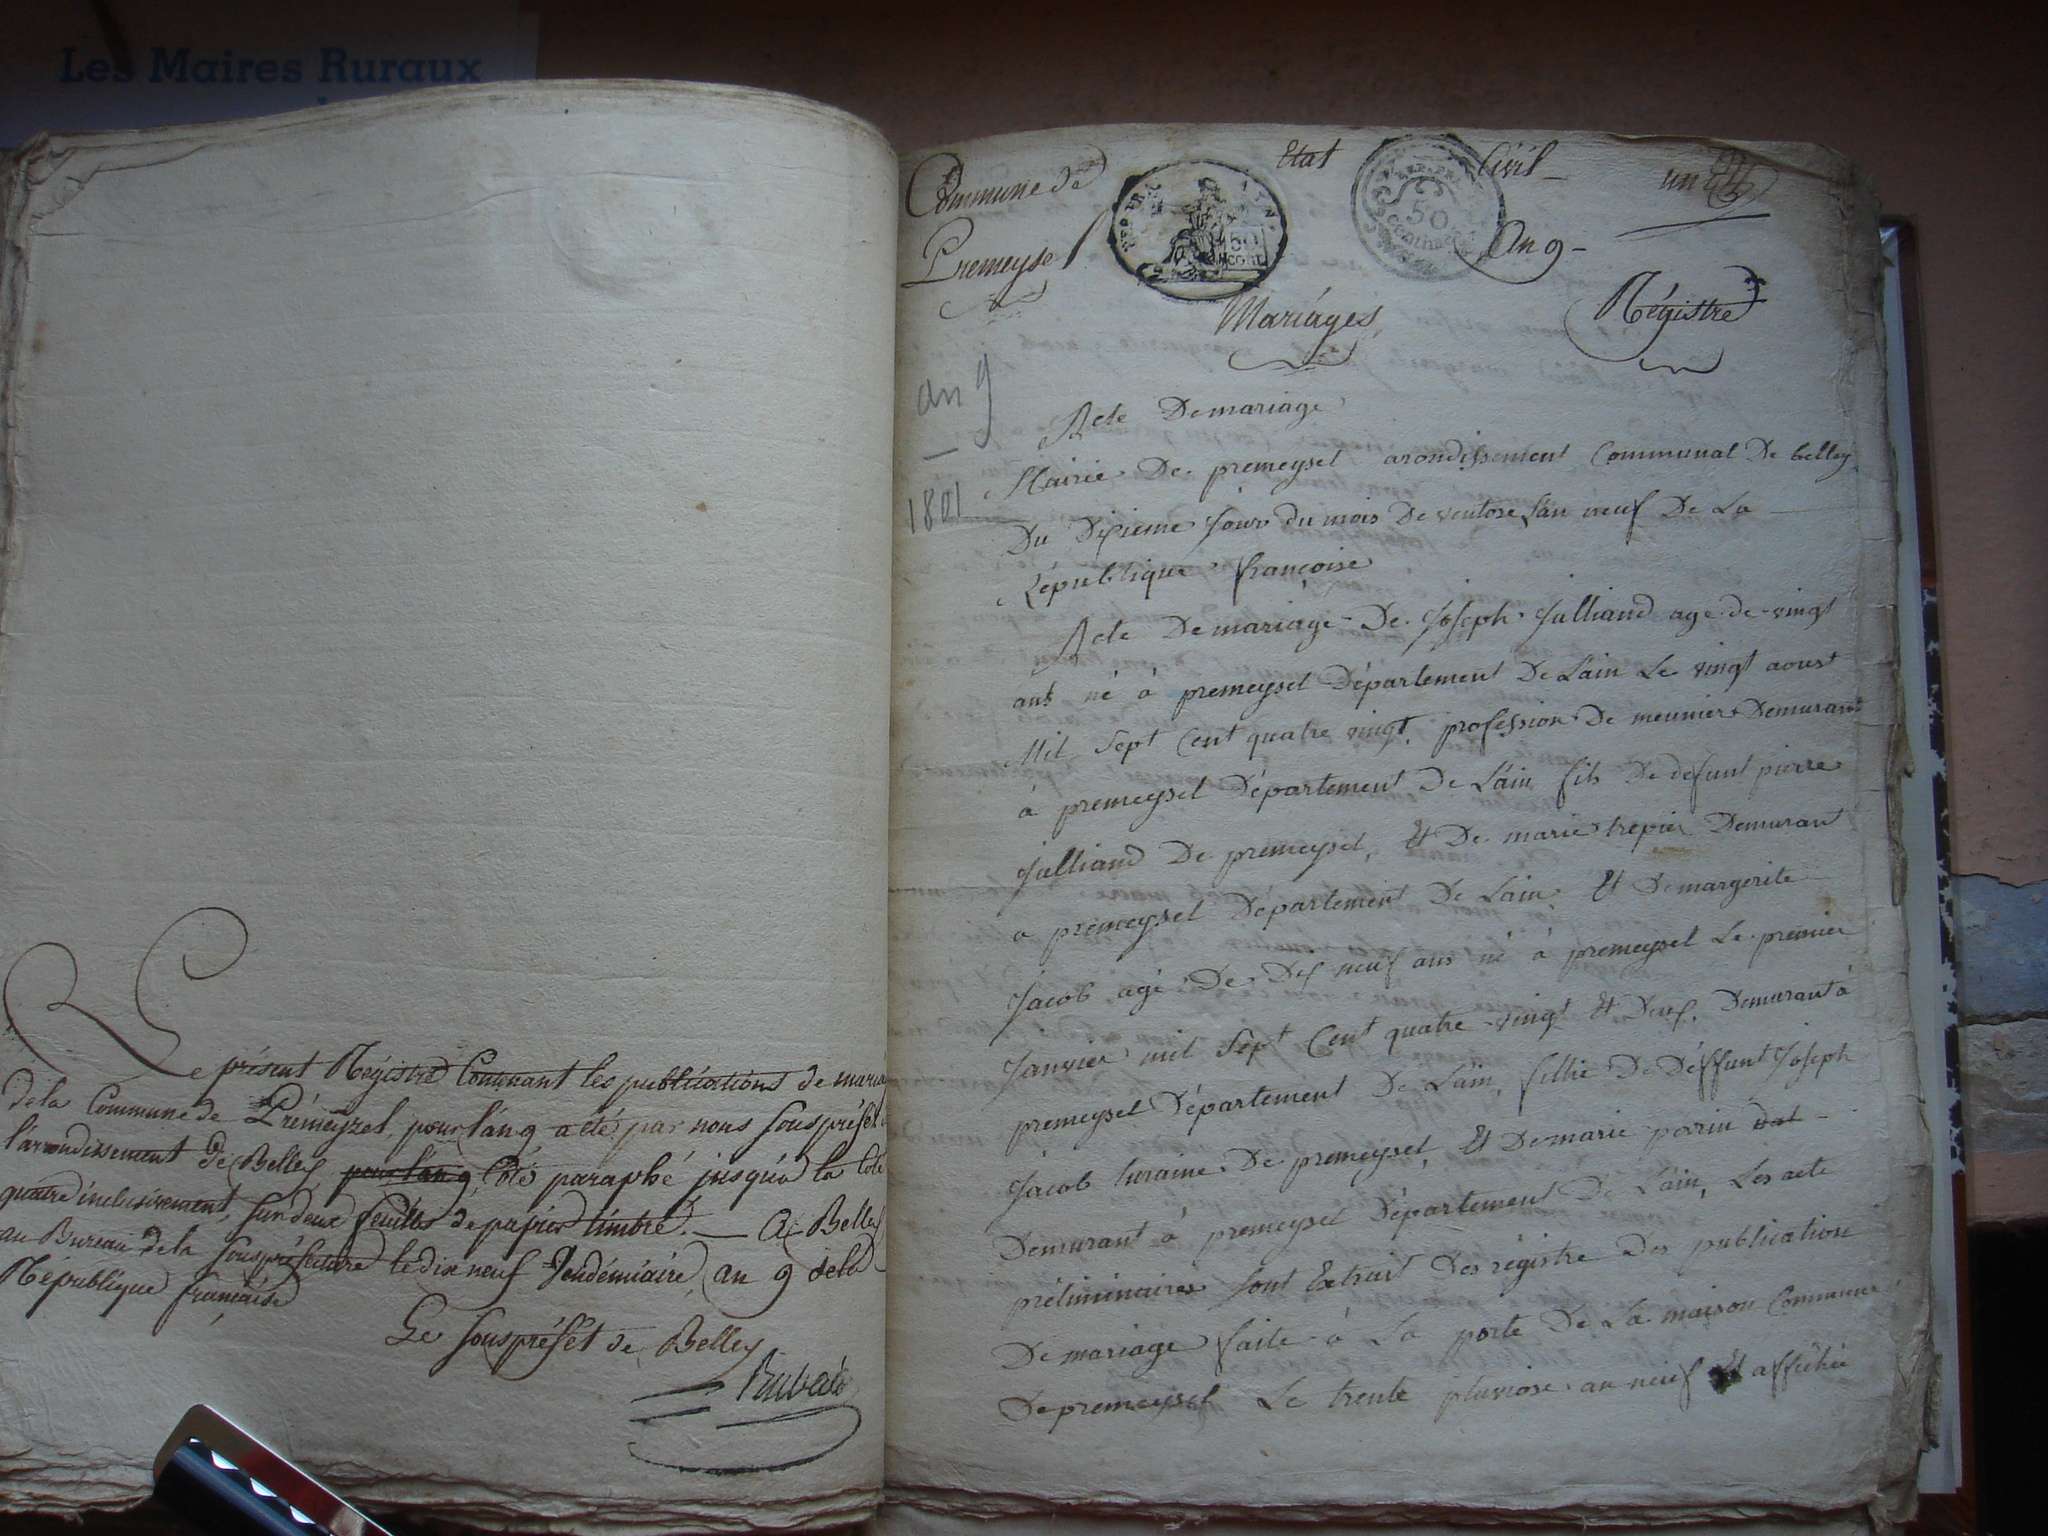 Les Maires Ruraux
Le présent Régistre Contenant les publications de maria
de la Commune de Prémeyzel, pour l'an 9 a été par nous souspréfet
l'arrondissement de Belley, pour l'an 9, Coté paraphé jusqu'à la Cote
quatre inclusivement, sur deux feuilles de papier timbré. — A Belley
au Bureau de la souspréfecture le dix neuf Vendémiaire, an 9 de la
République française
Le souspréfet de Belley
Commune de
Premeysel
Etat Civil
un
50
50 Centimes
An 9
Mariages
Régistre
an 9
1801
Acte De mariage
Mairie De premeysel arondissement Communal De belley
Du Dixieme Jour du mois De ventose L'an neuf De La
République françoise
Acte De mariage De Joseph Julliand age de vingt
ans né à premeysel Département De L'ain Le vingt aoust
Mil Sept Cent quatre vingt, profession De meunier Demurant
à premeysel Département De L'ain fils De defunt pierre
Julliand De premeysel, Et De marie trepier Demurant
a premeysel Département De L'ain Et De margerite
Jacob agé De Dix neuf ans né à premeysel Le premier
Janvier mil Sept Cent quatre vingt Et Deux, Demurant à
premeysel Département De L'ain, fillie De Déffunt Joseph
Jacob luraine De premeysel, Et De marie perrin
Demurant à premeysel Département De L'ain, Les acte
préliminaires sont Extrait Des régistre Des publication
De mariage faite à La porte De La maison Commune
De premeysel Le trente pluviose an neuf Et affichée